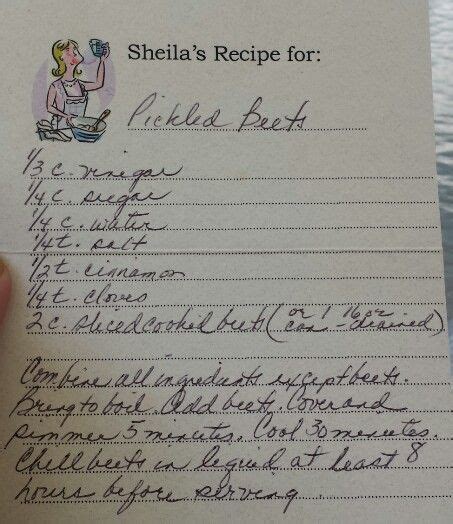 Sheila's Recipe for:
Pickled Beets
1/3 c. vinegar
1/4 c. sugar
1/4 c. water
1/4 t. salt
1/2 t. cinnamon
1/4 t. cloves
2 c. sliced cooked beets (or 1 16 oz
can - drained)
Combine all ingredients except beets.
Bring to boil. Add beets. Cover and
simmer 5 minutes. Cool 30 minutes.
Chill beets in liquid at least 8
hours before serving